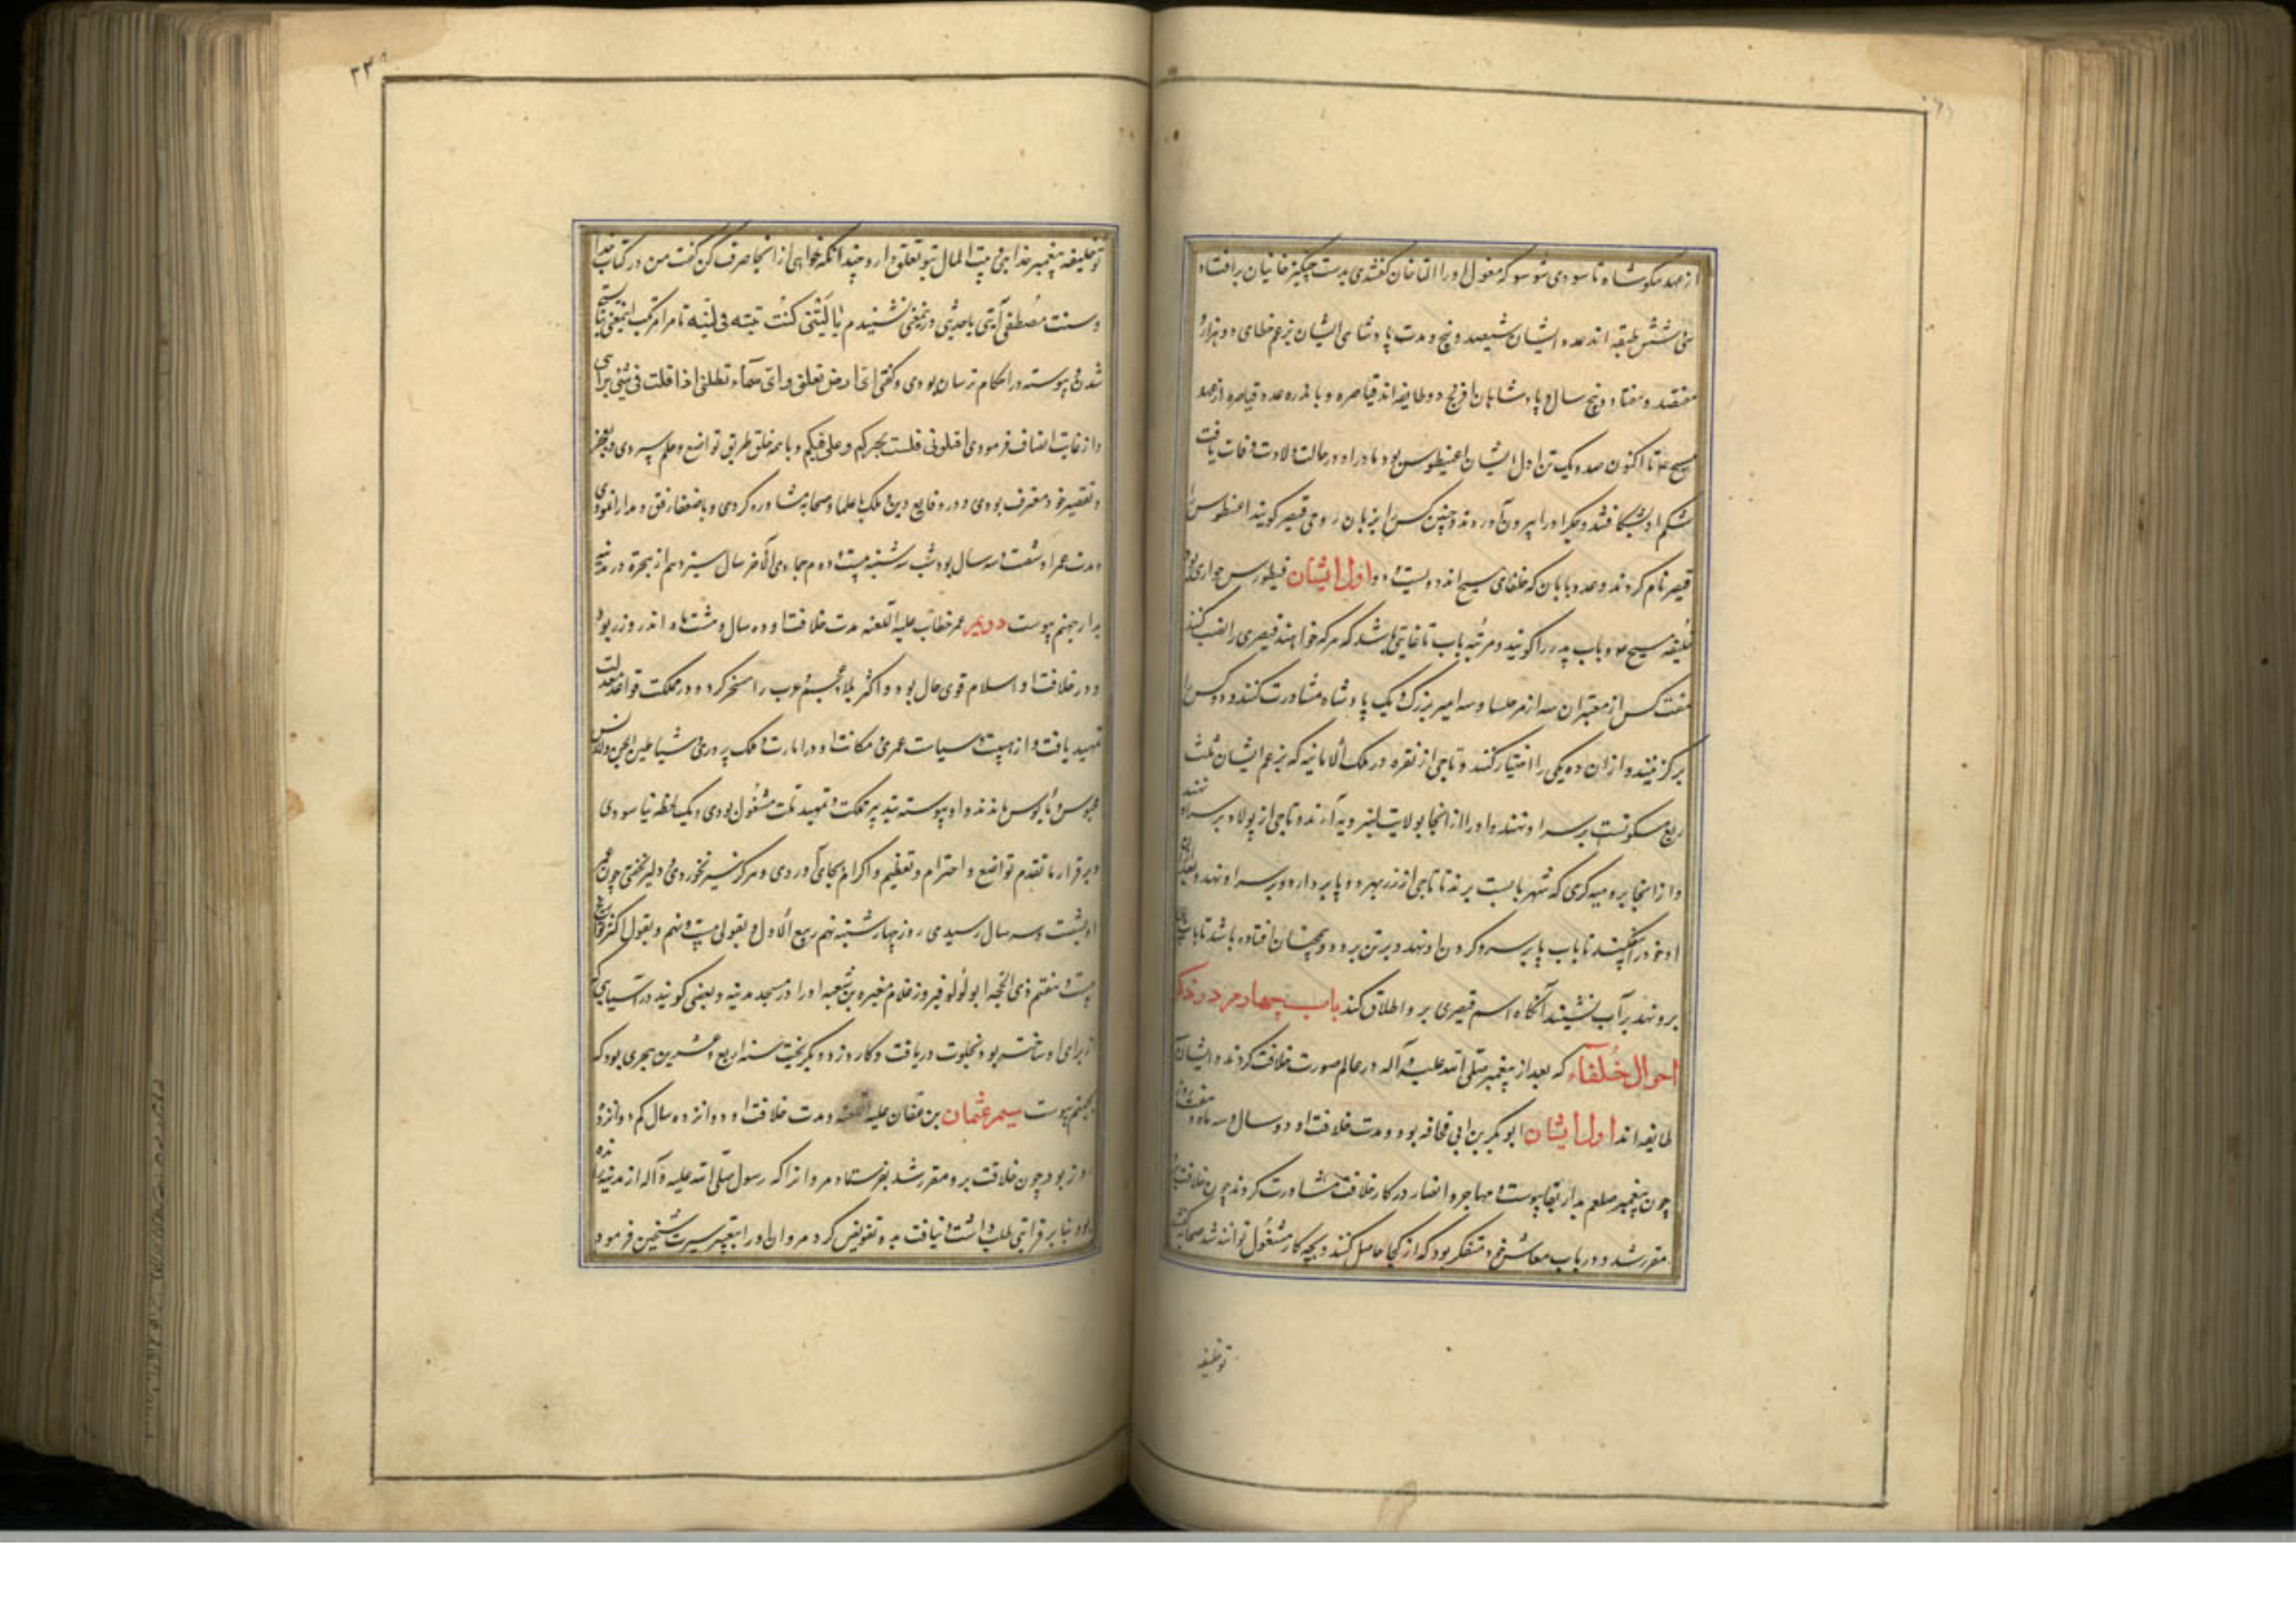 از عهد مکوشاه تا سودی شو سو که مغول او را التاخان گفتندی بدست چنگیز خانیان بر افتاد
سی شش طبقه اند عدد ایشان سیصد و پنج و مدت پادشاهی ایشان بزعم خطای دو هزار
هفتصد و هفتاد و پنج سال و پادشاهان افرنج دو طایفه اند قیاصره و بابا عدد قیاصره از عهد
مسیح تا اکنون صد و یک تن اول ایشان اغنیطوس بود مادر او در حالت ولادت وفات یافت
شکم او بشکافتند و جگر او را بیرون آوردند و چنین کس را بزبان رومی قیصر گویند اغنطوس را
قیصر نام کردند و عدد بابان که خلفای مسیح اند دویست و اول ایشان فیطورس حواری بود
خلیفه مسیح و باب پدر را گویند و مرتبه باب تا غایتی باشد که هر که خواهند قیصری را نصب کنند
هفت کس از معتبران سه از مرحلسا و سه امیر بزرگ و یک پادشاه مشاورت کنند و ده کس را
برگزینند و از آن ده یکی را اختیار کنند و تاجی از نقره در ملک الامانیه که بزعم ایشان ثلث
ربع مسکونست بر سر او نهند و او را از آنجا بولایت لنبرویه آرند و تاجی از پولاد بر سر او نهند
و از آنجا برومیه کبری که شهر بابست برند تا تاجی از زر بهر دو پا بردارد و بر سر او نهد و بعد از آن
او خود را بیفکند تا باب پا بر سر و گردن او نهد و بر تن برود و همچنان افتاده باشد تا باب
برو نهد بر آب نشیند آنگاه اسم قیصری بر او اطلاق کند باب چهارم در ذکر
احوال خلفاء که بعد از پیغمبر صلی الله علیه و آله در عالم صورت خلافت کردند و ایشان
طایفه اند اول ایشان ابوبکر بن ابی قحافه بود و مدت خلافت او دو سال و سه ماه و هفت روز
چون پیغمبر صلعم بدار بقا پیوست و مهاجر و انصار در کار خلافت مشاورت کردند چون خلافت برو
مقرر شد و در باب معاش خود متفکر بود که از کجا حاصل کنند و بچه کار مشغول توانند شد صحابه گفتند
تو خلیفه
۲۳
تو خلیفه پیغمبر خدایی بیت المال بتو تعلق دارد چندانکه خواهی از آنجا صرف کن گفت من در کتاب خدا
و سنت مصطفی آیتی یا حدیثی درینمعنی نشنیدم یا لیتنی کنت تبنه فی لبنه تا مرا مرتکب اینمعنی نبایستی
شدن و پیوسته در احکام ترسان بودی و گفتی ای ارض تعلنی و ای سماء تظلنی اذا قلت فی شیء برای
و از غایت انصاف فرمودی اقیلونی فلست بخیرکم و علی فیکم و با همه خلق طریق تواضع و حلم سپردی و بعجز
و تقصیر خود معترف بودی و در وقایع دین و ملک با علما و صحابه مشاوره کردی و با ضعفا رفق و مدارا نمودی
مدت عمر او شصت و سه سال بود شب سه شنبه بیست و دوم جمادی الآخر سال سیزدهم از هجرة در مدینه
بدار جهنم پیوست دویم عمر خطاب علیه اللعنه مدت خلافت او ده سال و هشت ماه اندر روز بود
و در خلافت او اسلام قوی حال بود و اکثر بلاد عجم و عرب را مسخر کرد و در مملکت قواعد معدلت
تمهید یافت و از هیبت و سیاست عمری مکانت او در امارت و ملک پروری شیاطین الجن والانس
محبوس و مأیوس ماندند و او پیوسته بتدبیر مملکت و تمهید ملت مشغول بودی و یک لحظه نیاسودی
و بر قرار ما تقدم تواضع و احترام و تعظیم و اکرام بجای آوردی و هرگز سیر نخوردی و دلیر نخفتی چون عمر
او بشصت و سه سال رسیدی روز چهارشنبه نهم ربیع الاول و بقولی بیست و نهم و بقول اکثر
بیست و هفتم ذی الحجه ابولؤلؤ فیروز غلام مغیره بن شعبه او را در مسجد مدینه و بعضی گویند در آسیابی که
از برای او ساخته بود بخلوت دریافت و کارد زد و بگریخت سنه اربع و عشرین هجری بود که
بجهنم پیوست سیم عثمان بن عفان علیه اللعنه و مدت خلافت او دوازده سال کم دوازده
روز بود چون خلافت برو مقرر شد بفرستاد مروان را که رسول صلی الله علیه و آله از مدینه رانده
بود بنابر قرابتی طلب داشت و نیابت بدو تفویض کرد مروان او را بتغییر سیرت شیخین فرمود